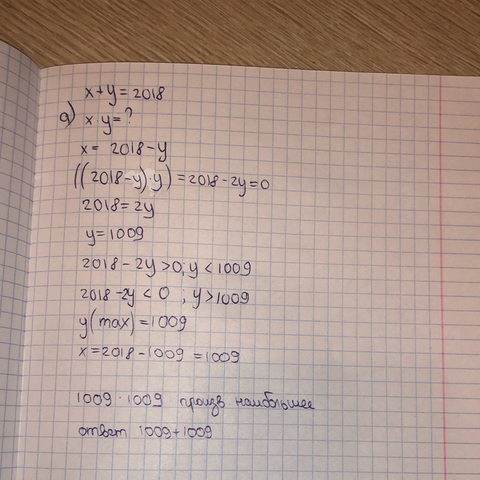 x+y=2018
а) x·y=?
x= 2018-y
((2018-y)·y)=2018-2y=0
2018=2y
y=1009
2018-2y>0; y<1009
2018-2y<0 ; y>1009
y(max)=1009
x=2018-1009=1009
1009·1009 произв наибольшее
ответ 1009+1009